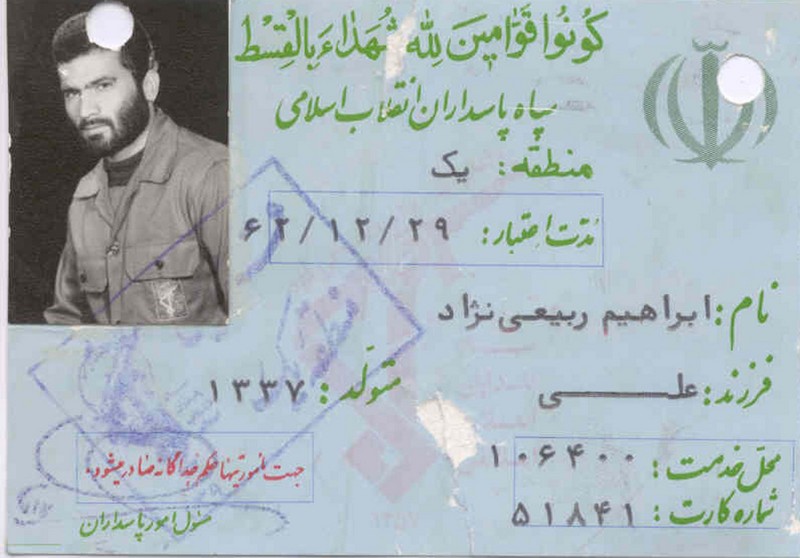 كُونُوا قَوَّامِينَ لِلَّهِ شُهَدَاءَ بِالْقِسْطِ
سپاه پاسداران انقلاب اسلامی
منطقه: یک
مدّت اعتبار: ۶۲/۱۲/۲۹
نام: ابراهیم ربیعی‌نژاد
فرزند: علی
متولّد: ۱۳۳۷
محل خدمت: ۱۰۶۴۰۰
شماره کارت: ۵۱۸۴۱
جهت مأموریتها حکم جداگانه صادر میشود.
مسئول امور پاسداران